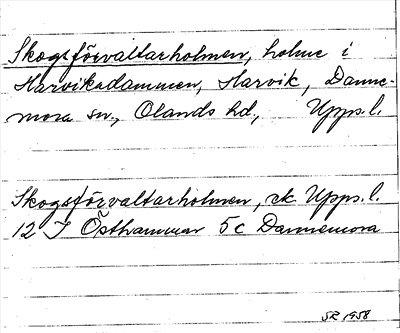 Skogsförvaltarholmen, holme i
Harviksdammen, Harvik, Danne-
mora sn, Olands hd, Upps. l.
Skogsförvaltarholmen, ek Upps. l.
12 I Östhammar 5c Dannemora
SR 1958